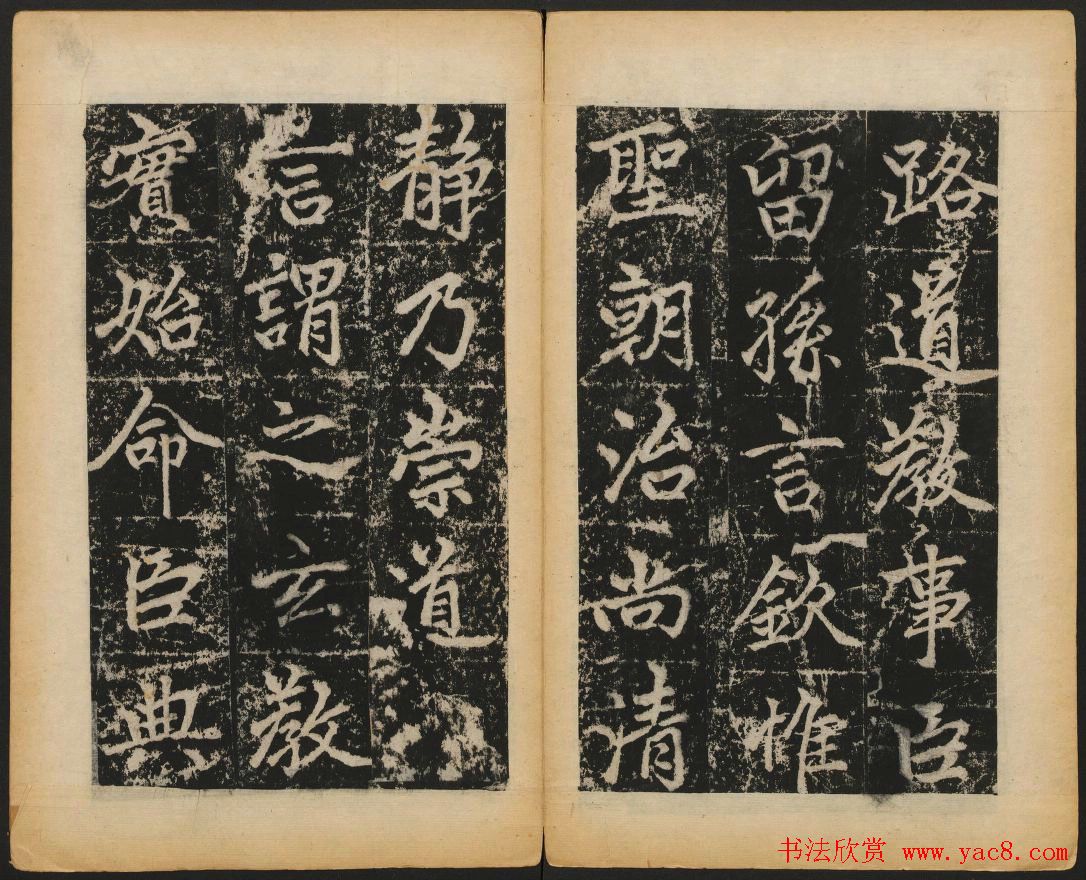 路道教事臣
留孫言欽惟
聖朝治尚清
靜乃崇道
言謂之玄教
實始命臣典
书法欣赏 www.yac8.com